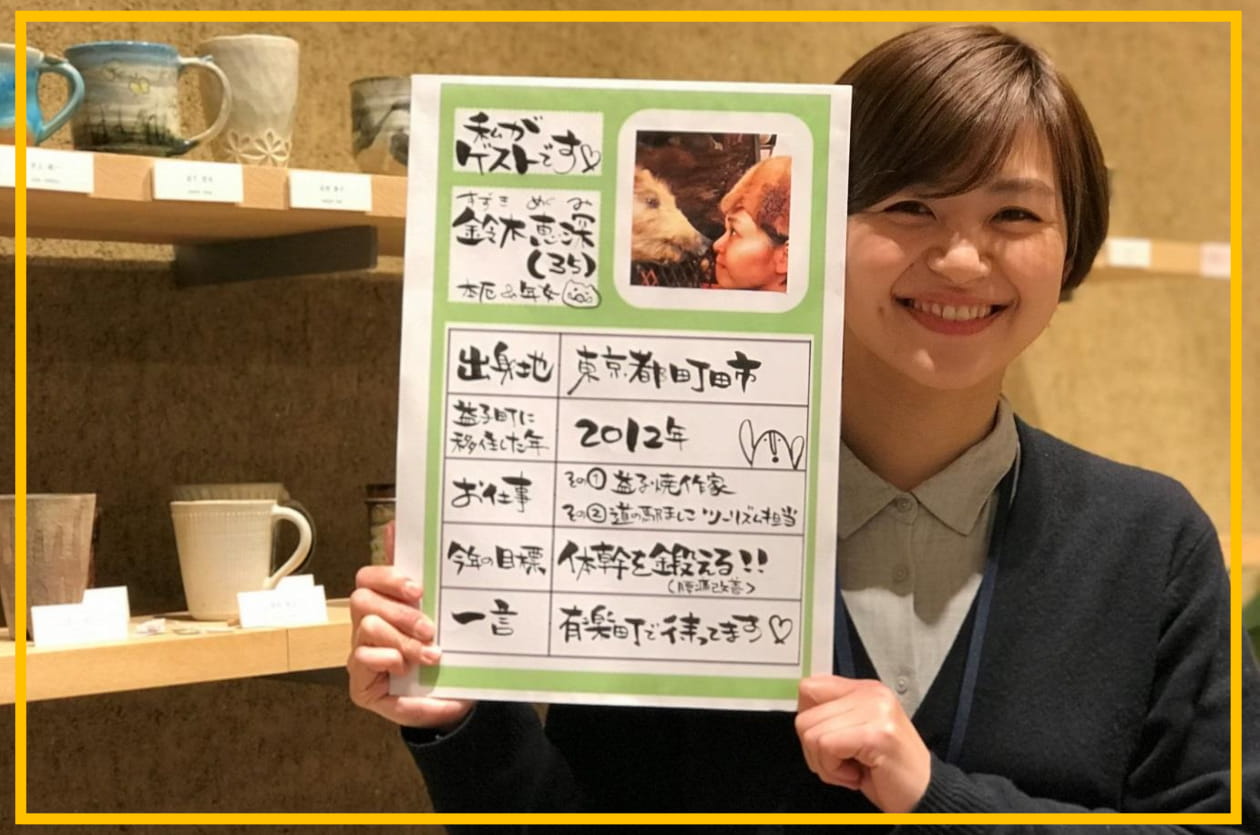 私が
ゲストです♡
すずき めぐみ
鈴木恵深
(35)
本厄&年女
出身地 東京都町田市
益子町に
移住した年 2012年
お仕事 その① 益子焼作家
その② 道の駅ましこ ツーリズム担当
今年の目標 体幹を鍛える!!
(腰痛改善)
一言 有楽町で待ってます♡